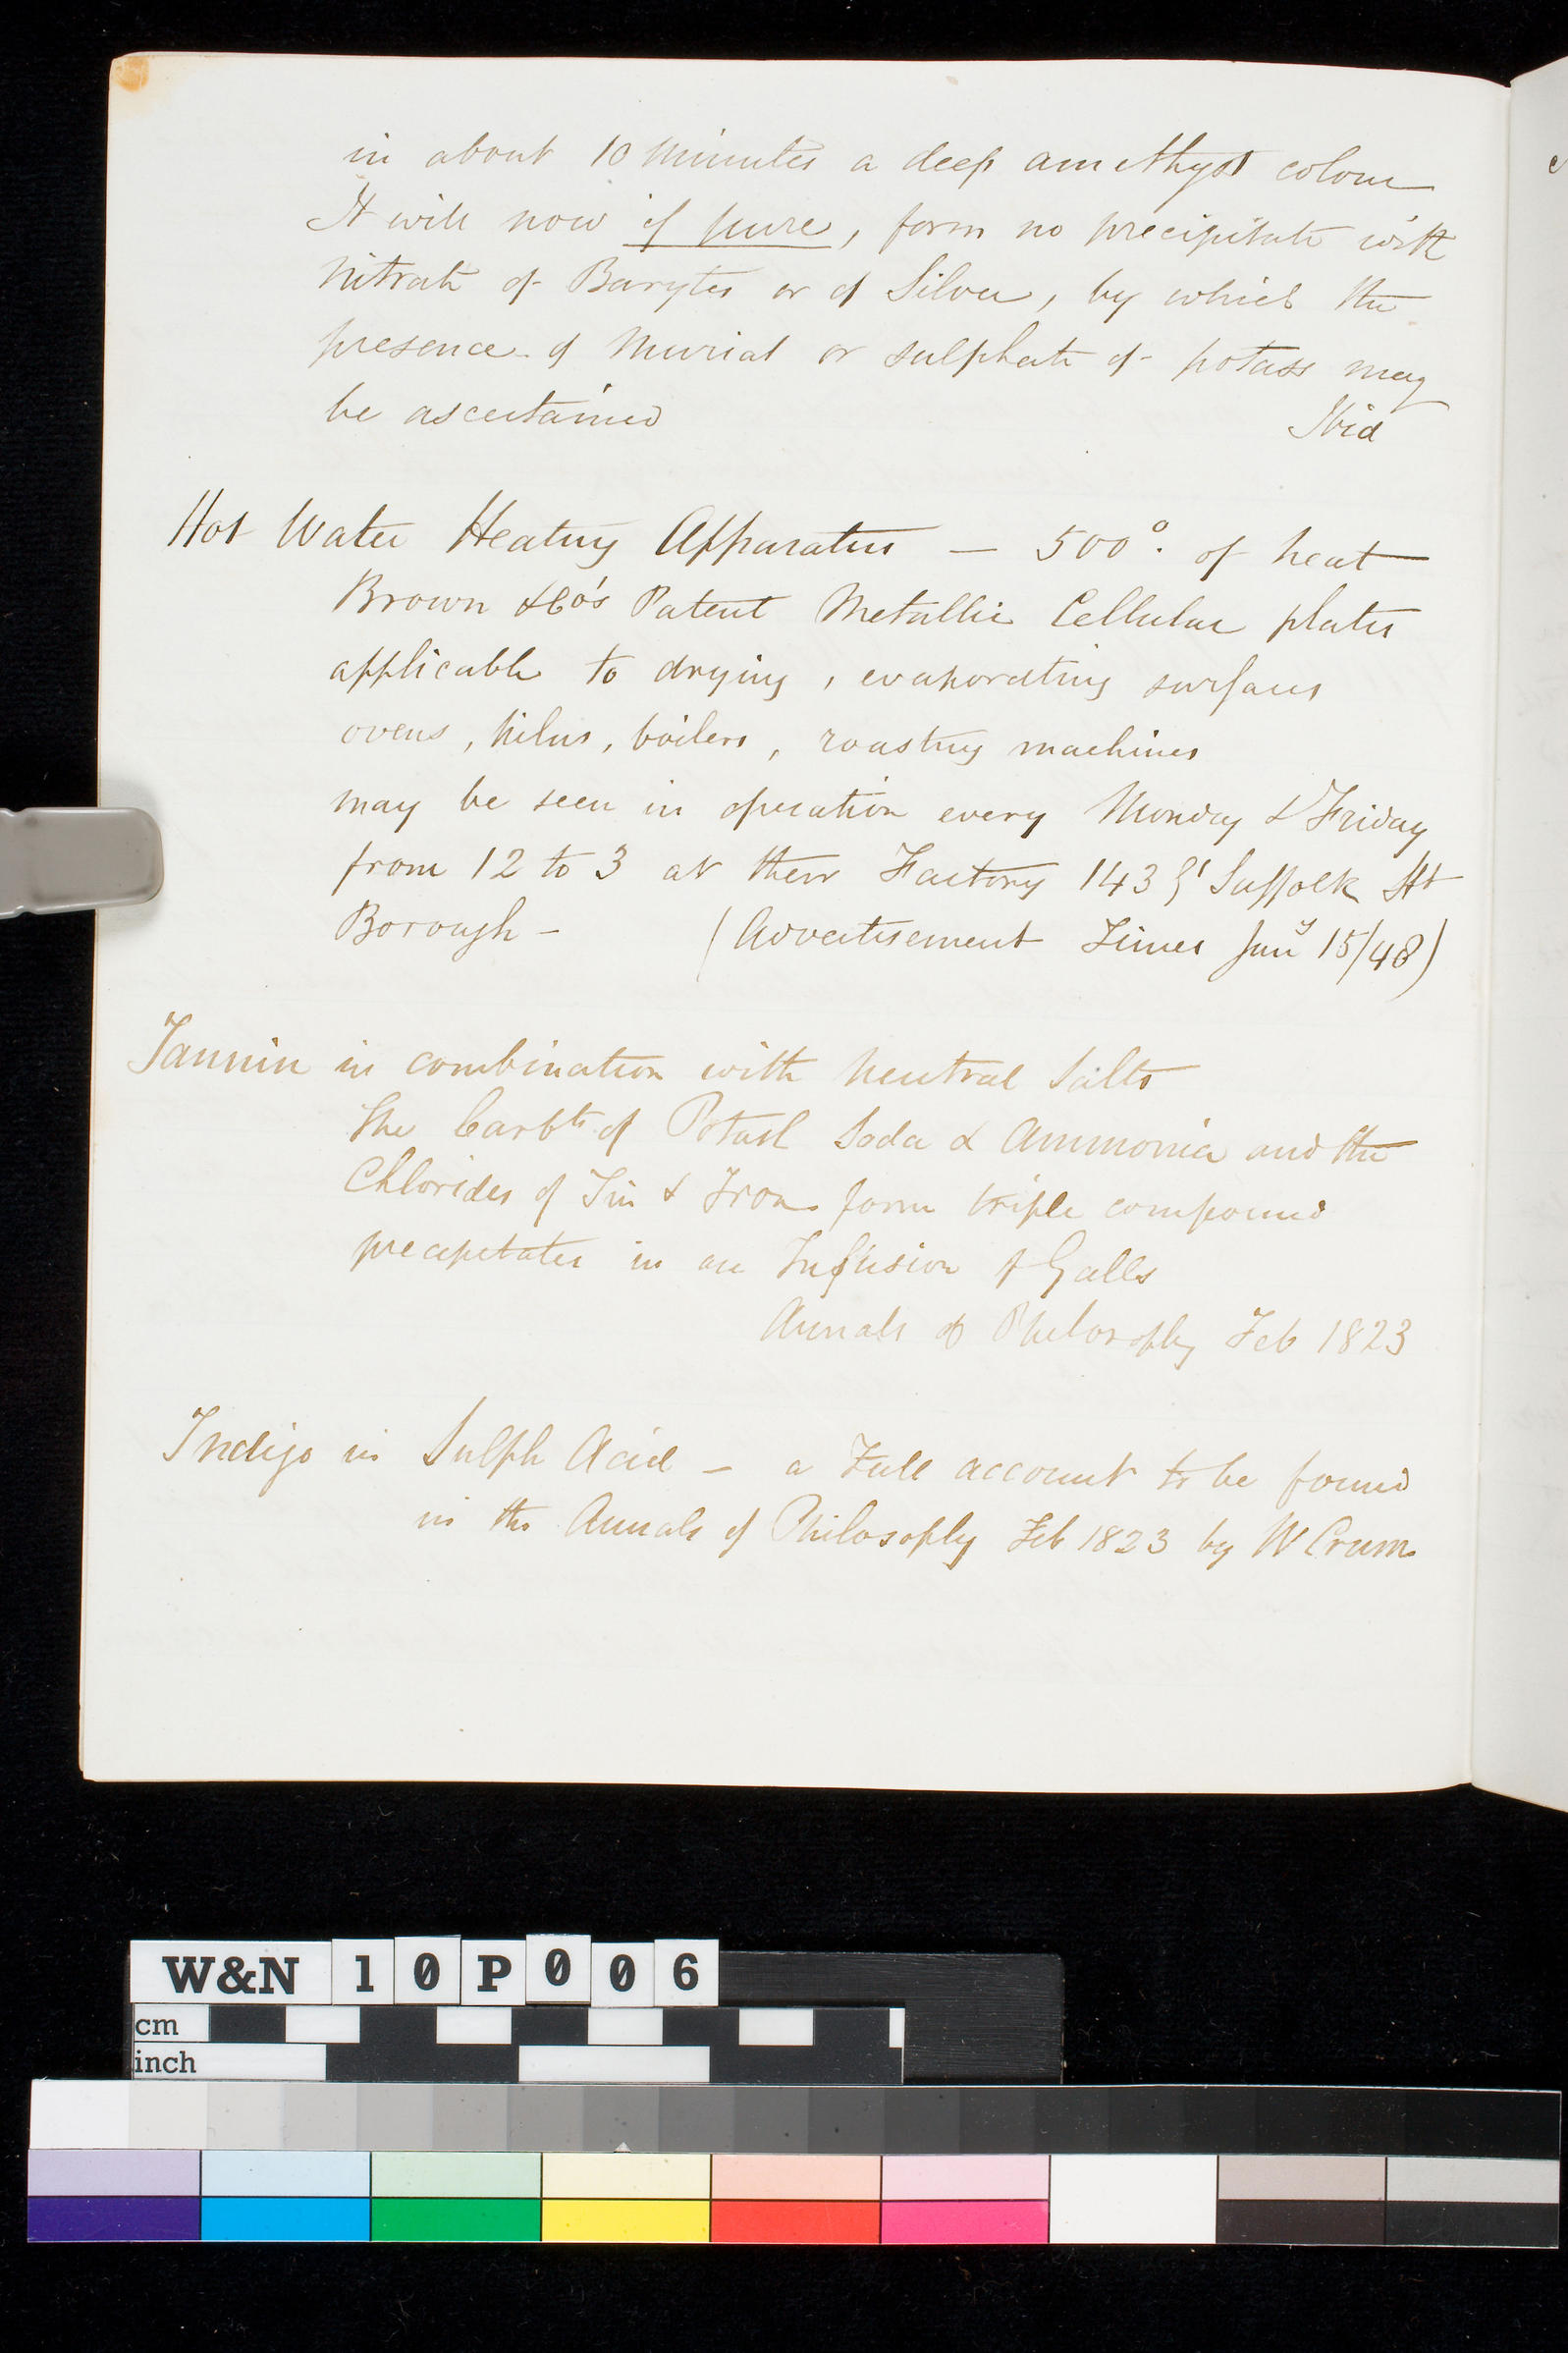 in about 10 minutes a deep amethyst colour
It will now if pure, form no precipitate with
Nitrate of Barytes or of Silver, by which the
presence of Muriat or sulphate of potass may
be ascertained
Ibid
Hot Water Heating Apparatus — 500° of heat
Brown & Co's Patent Metallic Cellular plates
applicable to drying, evaporating surfaces
ovens, kilns, boilers, roasting machines
may be seen in operation every Monday & Friday
from 12 to 3 at their Factory 143 Gt Suffolk St
Borough – (Advertisement Times Jany 15/48)
Tannin in combination with Neutral Salts
The Carbts of Potash Soda & Ammonia and the
Chlorides of Tin & Iron form triple compound
precipitates in an Infusion of Galls
Annals of Philosophy Feb 1823
Indigo in Sulph Acid – a Full account to be found
in the Annals of Philosophy Feb 1823 by W Crum
W&N 10P006
cm
inch